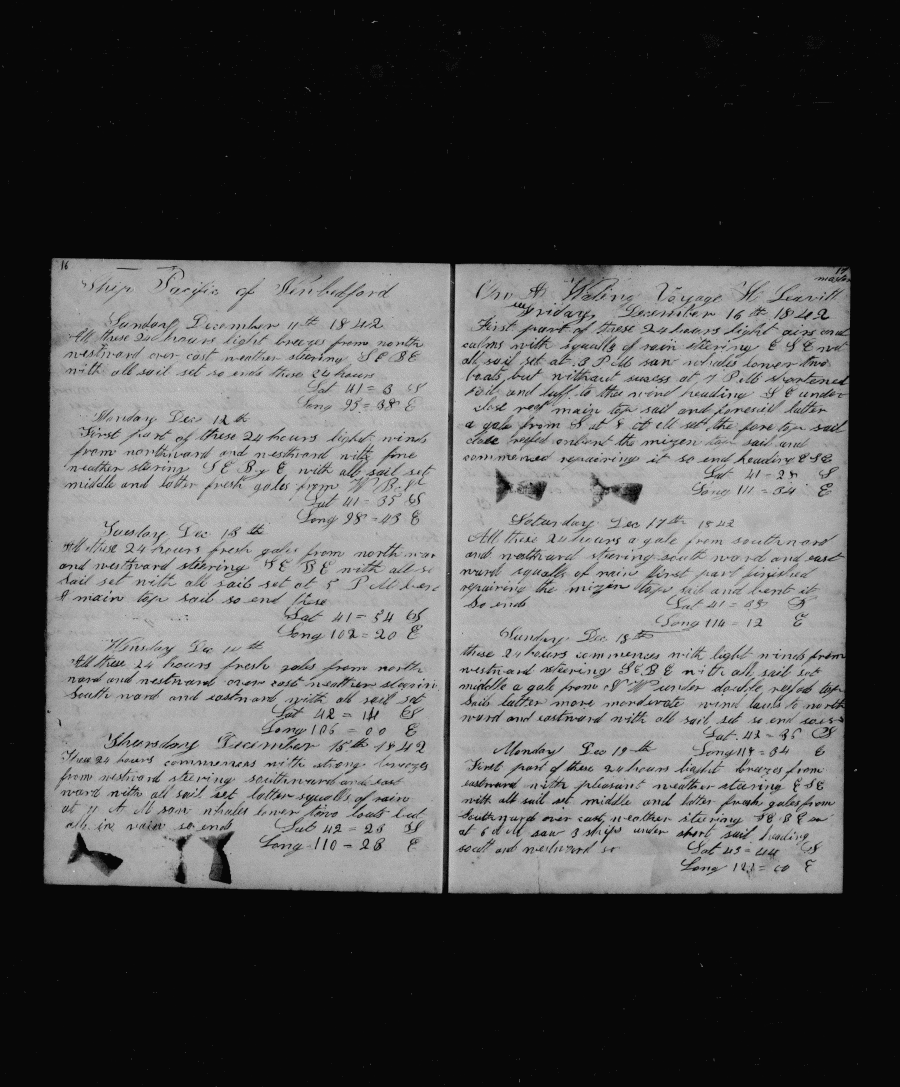 16
Ship Pacific of Newbedford
Sunday December 11th 1842
All these 24 hours light breezes from north
westward over cast weather steering S E B E
with all sail set so ends these 24 hours
Lat 41 = 3 S
Long 95 = 38 E
Monday Dec 12th
First part of these 24 hours light winds
from northward and westward with fine
weather stering S E B y E with all sail set
middle and latter fresh gales from W B
Lat 41 = 35 S
Long 98 = 43 E
Tuesday Dec 13th
All these 24 hours fresh gales from north war
and westward steering S E B E with all
sail set with all sail set at 5 P M
main top sail so end these
Lat 41 = 54 S
Long 102 = 20 E
Wensday Dec 14th
All these 24 hours fresh gales from north
ward and westward over cast weather steerin
South ward and eastward with all sail set
Lat 42 = 14 S
Long 106 = 00 E
Thursday December 15th 1842
These 24 hours commences with strong breezes
from westward steering southward and east
ward with all sail set latter squalls of rain
at 7 A M saw whales lower two boats but
all in vain so ends
Lat 42 = 23 S
Long 110 = 28 E
17
On A Waling Voyage H Leavitt
master
Friday December 16th 1842
First part of these 24 hours light airs and
calms with squalls of rain steering E S E
all sail set at 3 P M saw whales lower two
boats but without sucess at 7 P M shortened
sail and luff to the wind heading S E under
close reef main top sail and foresail latter
a gale from S at 8 A M set the fore top sail
close reefed unbent the mizen top sail and
commenced repairing it so end heading E S E
Lat 41 = 28 S
Long 111 = 34 E
Saturday Dec 17th 1842
All these 24 hours a gale from southward
and westward steering south ward and east
ward squalls of rain first part finished
repairing the mizen top sail and bent it
So ends
Lat 41 = 38 S
Long 114 = 12 E
Sunday Dec 18th
these 24 hours commences with light winds from
westward steering S E B E with all sail set
middle a gale from N W under double reefed top
sails latter more morderate wind to north
ward and eastward with all sail set so end
Lat 42 = 36 S
Monday Dec 19th
Long 118 = 34 E
First part of these 24 hours light brezes from
eastward with pleasant weather steering E S E
with all sail set middle and latter fresh gales from
Southward over cast weather steering S E B E
at 6 A M saw 3 ships under short sail heading
south and westward so
Lat 43 = 44 S
Long 121 = 00 E